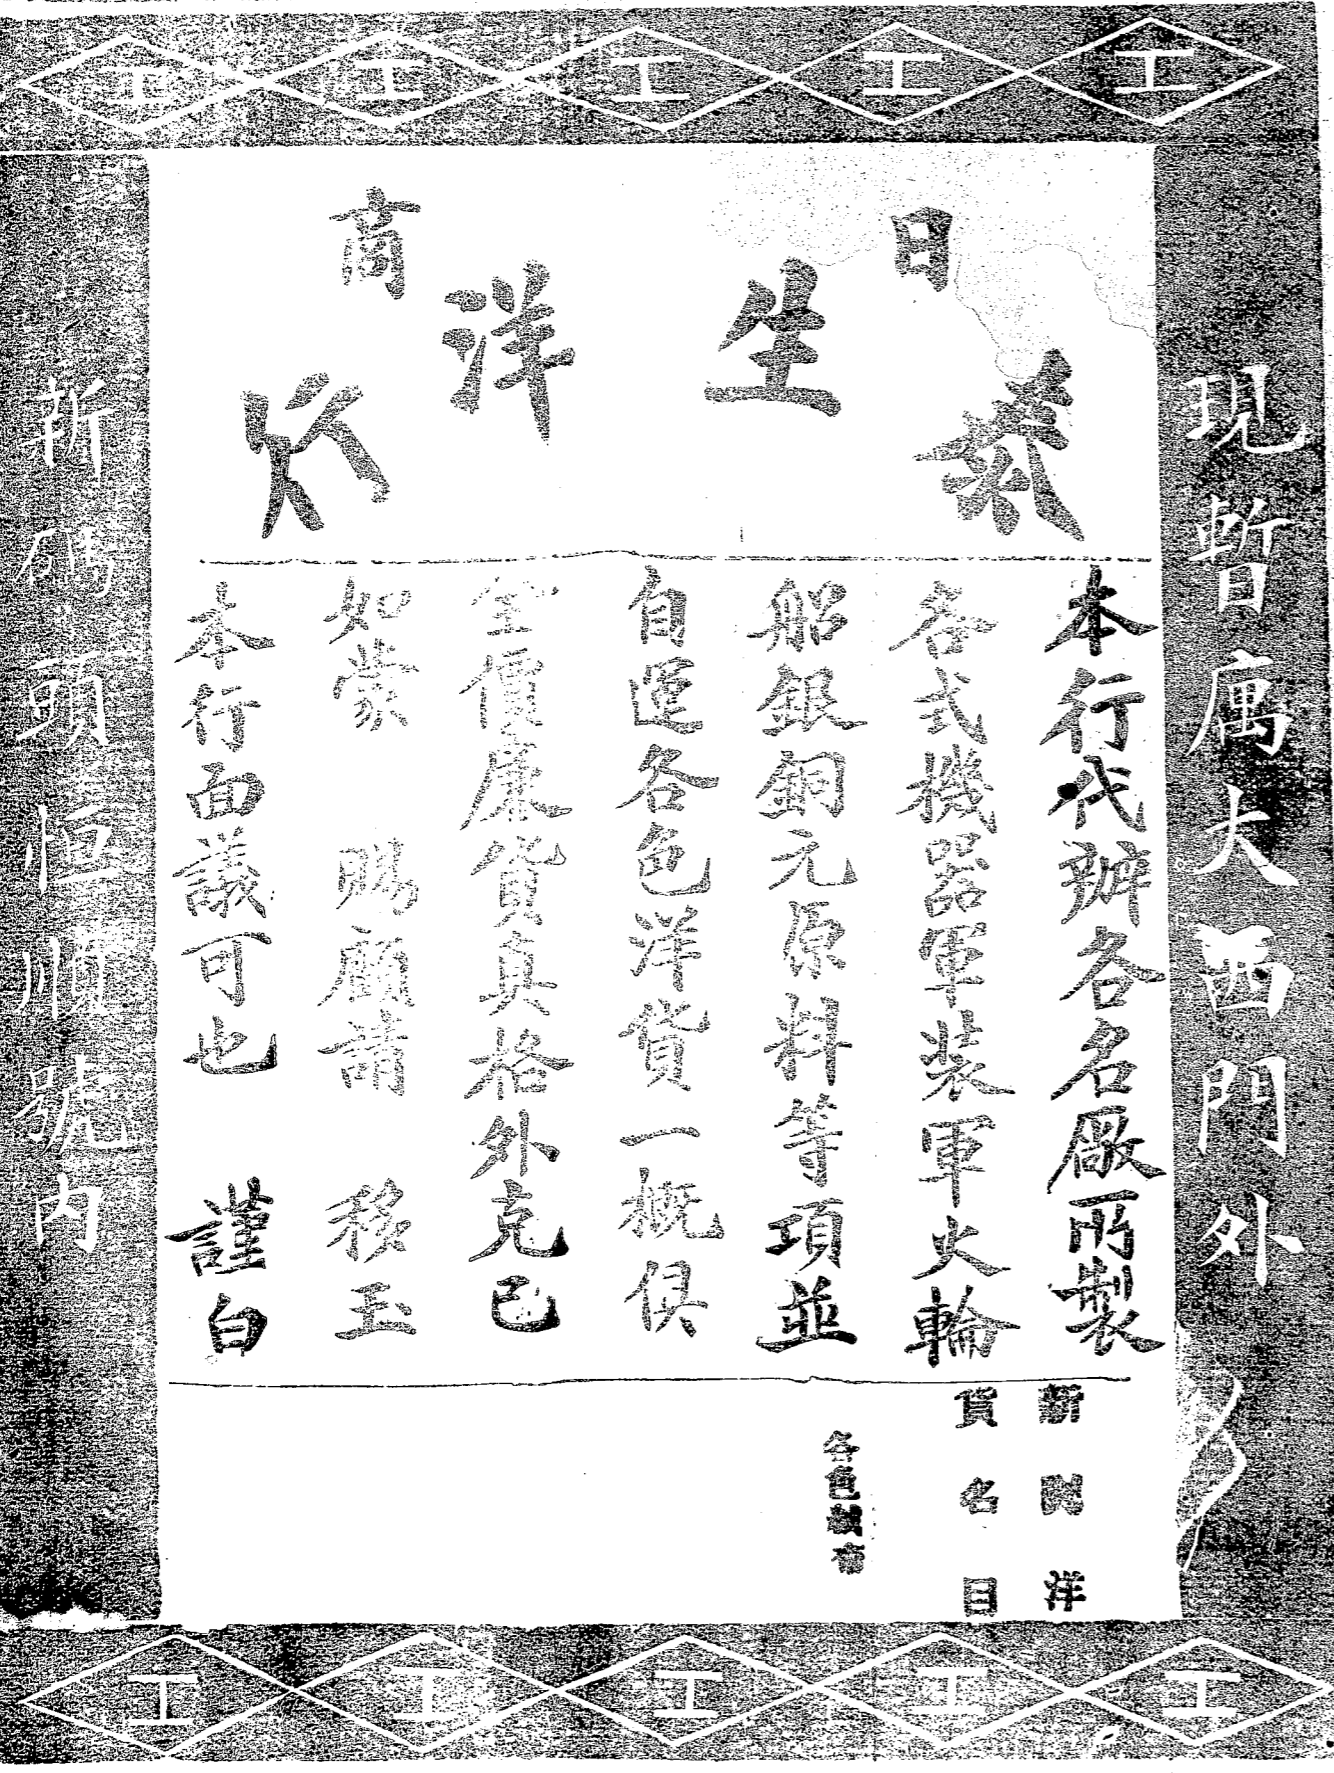 工 工 工 工 工
現暫庽大西門外
日 商
生洋行
本行代辦各名厰所製
各式機器軍裝軍火輪
船銀銅元原料等項並
自運各色洋貨一概俱
全價廉貨真格外克己
如蒙 賜顧請 移玉
本行面議可也 謹白
新開洋
貨名目
各色布
新碼頭恒順號內
工 工 工 工 工